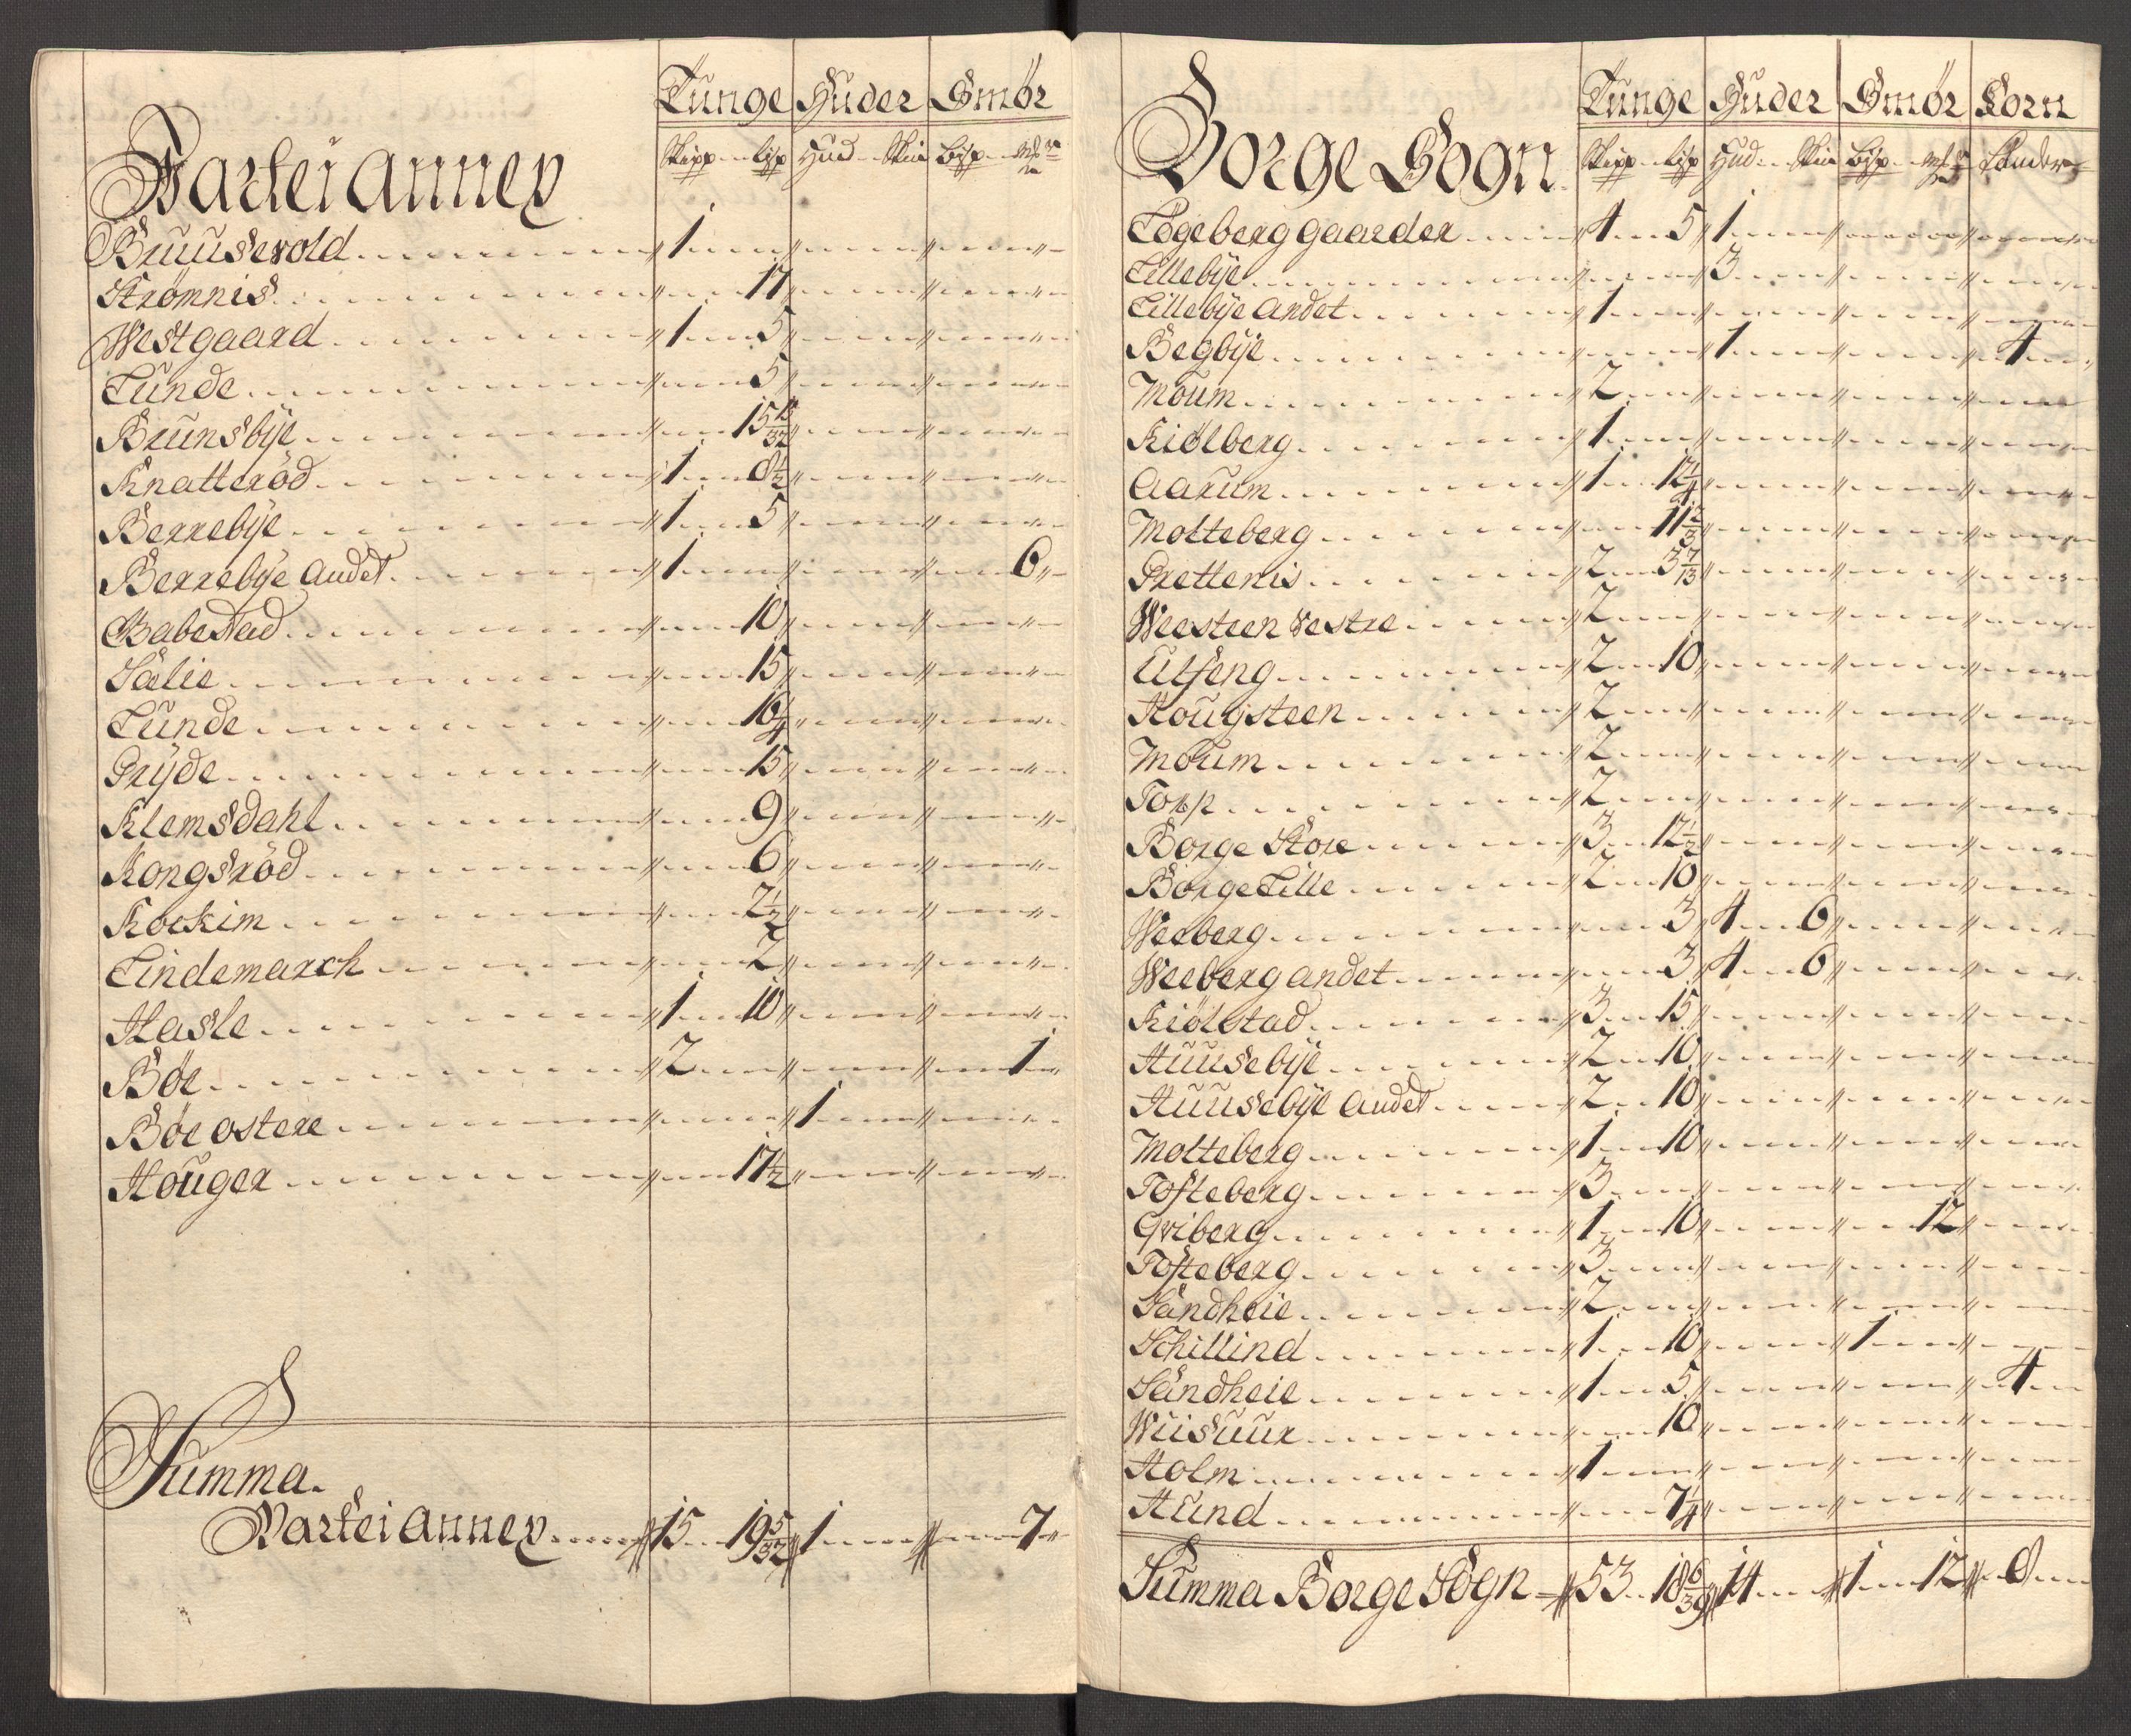 Tunge Huder Smør
Skipp lisp Hud Skin Bisp
Vartei Annex
Bruusevold 1
Strømnis 17
Westgaard 1 5
Lunde 5
Brunsbÿe 15 13/32
Knatterød 1 8 1/2
Berrebÿe 1 5
Berrebÿe Audet 1 6
Babestad 10
Sælie 15
Lunde 16 1/4
Prÿde 15
Klemsdahl 9
Kongsrød 6
Kockim 2 1/2
Lindemarck 2
Hasle 1 10
Bøe 2 1
Bøe østere 1
Houger 17 1/2
Summa.
Vartei Annex 15 19 5/32 1 7
Tunge Huder Smør Korn
Borge Sogn Skipp lisp Hud Skin Bisp Tønder
Løgeberg gaarder 4 5 1
Lillebÿe 3
Lillebÿe Andet 1
Begbÿe 1 4
Moum 2
Kiølberg 1
Aarum 1 12 1/4
Molteberg 11 2/3
Grettenis 2 3 7/13
Weesteen Vestre 2
Ulfeng 2 10
Hougsteen 2
Moum 2
Torp 2
Borge Store 3 12 1/2
Borge Lille 2 10
Weeberg 3 4 6
Weeberg andet 3 4 6
Kiølstad 3 15
Huusebÿe 2 10
Huusebÿe Audet 2 10
Molteberg 1 10
Tofteberg 3
Qviberg 1 10 12
Tofteberg 3
Sandheie 2
Schillind 1 10 1
Sandheie 1 5 4
Wiisuur 10
Holm 1
Hund 7 1/4
Summa Borge Sogn 53 18 6/39 14 1 12 8